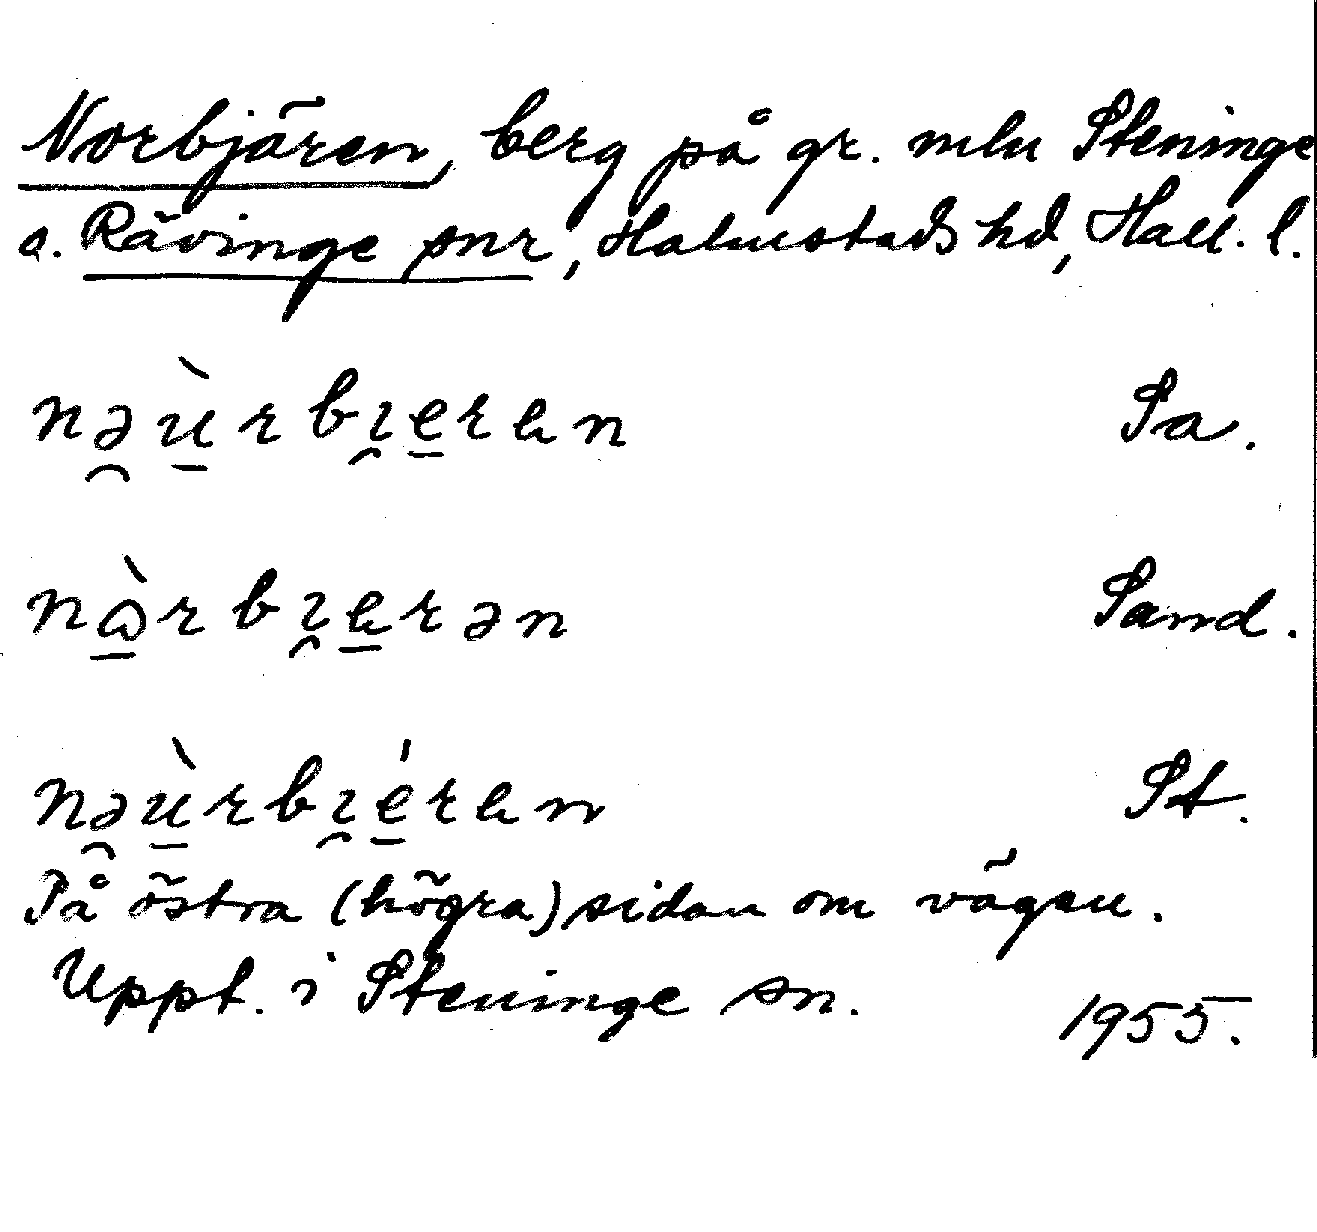 Norbjären, berg på gr. mln Steninge
o. Rävinge snr, Halmstads hd, Hall. l.
nə̯ù̱rbı̯e̱ran Sa.
nɷ̱̀rbı̯a̱rən Sand.
nə̯ù̱rbı̯é̱ran St.
På östra (högra) sidan om vägen.
Uppt. i Steninge sn.
1955.